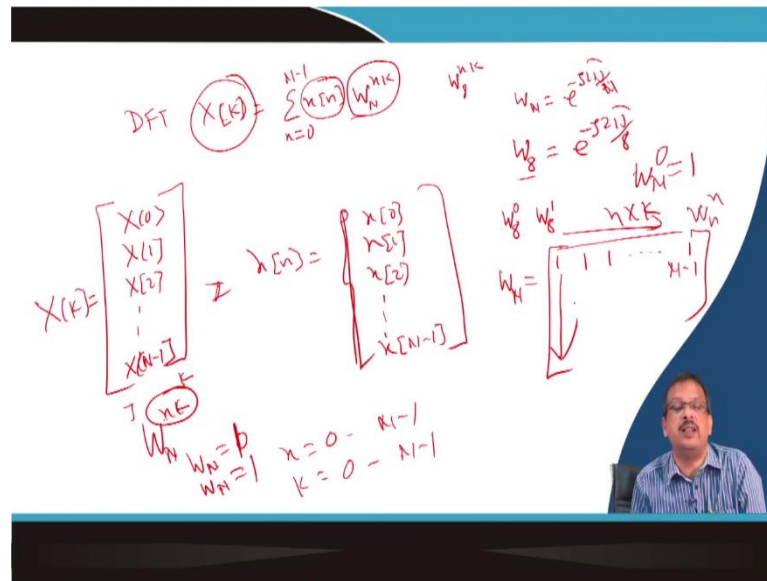 DFT X[K] = ∑ x[n] W_N^{nK}
N-1
n=0
W_8^{nK}
W_N = e^{-j2π/N}
W_8 = e^{-j2π/8}
W_N^0 = 1
W_8^0 W_8^1 n×K
X[K] = [ X(0) X[1] X[2] ⋮ X[N-1] ]
x[n] = [ x[0] x[1] x[2] ⋮ x[N-1] ]
W_N = [ 1 1 1 ..... 1
N-1
W_N^{nK}
W_N = 1
n = 0 - N-1
K = 0 - N-1